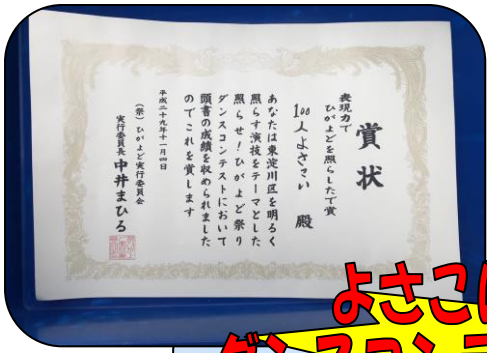 賞状
表現力で
ひがよどを照らしたで賞
100人よさこい 殿
あなたは東淀川区を明るく
照らす演技をテーマとした
照らせ！ひがよど祭り
ダンスコンテストにおいて
頭書の成績を収められました
のでこれを賞します
平成二十九年十一月四日
（祭）ひがよど実行委員会
実行委員長 中井まひる
よさこい
ダンスコン